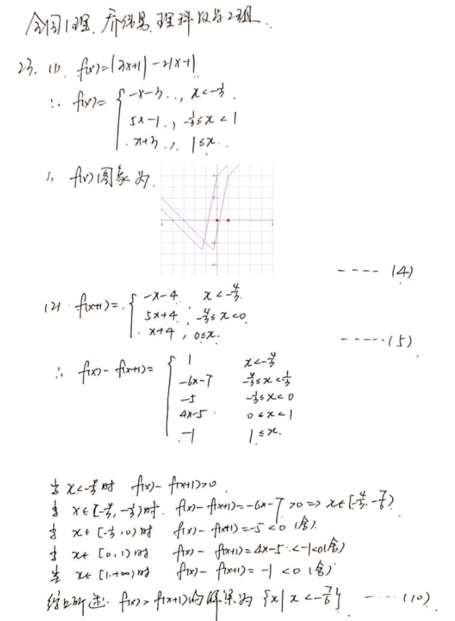 全国1理 乔
23. (1) f(x)=|3x+1|-2|x-1|
∴ f(x)= { -x-3., x<-1/3.
5x-1., -1/3≤x<1
x+3., 1≤x..
∴ f(x)图象为.
---- (4)
(2) f(x+1)= { -x-4 , x<-4/3.
5x+4 , -4/3≤x<0.
x+4 , 0≤x.
---- (5)
∴ f(x)-f(x+1)= { 1 x<-4/3
-6x-7 -4/3≤x<-1/3
-5 -1/3≤x<0
4x-5 0≤x<1
-1 1≤x.
当 x<-4/3 时 f(x)-f(x+1)>0.
当 x∈[-4/3,-1/3)时. f(x)-f(x+1)=-6x-7>0=>x∈[-4/3,-7/6)
当 x∈[-1/3,0)时 f(x)-f(x+1)=-5<0 (舍)
当 x∈[0,1)时 f(x)-f(x+1)=4x-5<-1<0(舍)
当 x∈[1,+∞)时 f(x)-f(x+1)=-1<0 (舍)
综上所述. f(x)>f(x+1)的解集为 {x|x<-7/6} ---- (10)